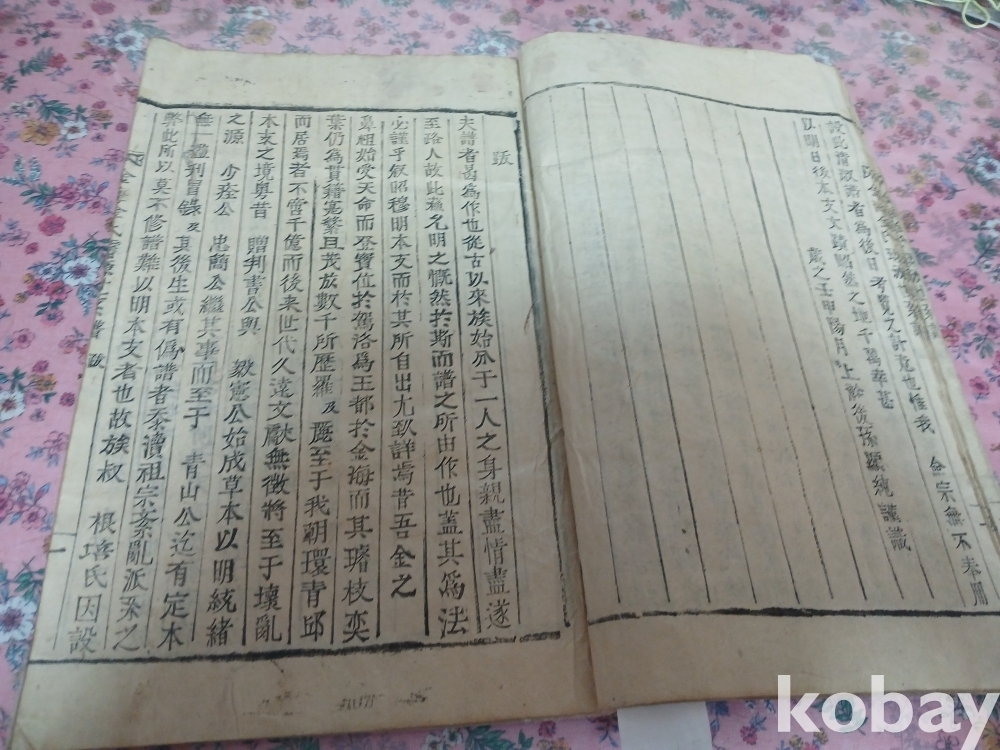 者為後日考覽之計意也惟我 金宗無不奉用
以明日後本支文蹟昭然之地千萬幸甚
歲之壬申陽月上 後孫顯統謹識
跋
夫譜者曷為作也從古以來族始分于一人之身親盡情盡遂
至路人故此 允明之慨然於斯而譜之所由作也蓋其為法
必謹乎叙昭穆明本支而於其所自出尤致詳焉昔吾金之
鼻祖始受天命而登寶位於駕洛為王都於金海而其璿枝奕
葉仍為貫籍寔繁且茂放數千所歷羅及麗至于我朝環青邱
而居焉者不啻千億而後来世代久遠文獻無徵將至于壞亂
本支之境粤昔 贈判書公與 毅憲公始成草本以明統緒
之源 少痊公 忠簡公繼其事而至于 青山公迄有定本
無一 刊冒錄及其後生或有偽譜者忝瀆祖宗紊亂派系之
弊此所以莫不修譜難以明本支者也故族叔 根培氏因設
譜 跋 一
kobay